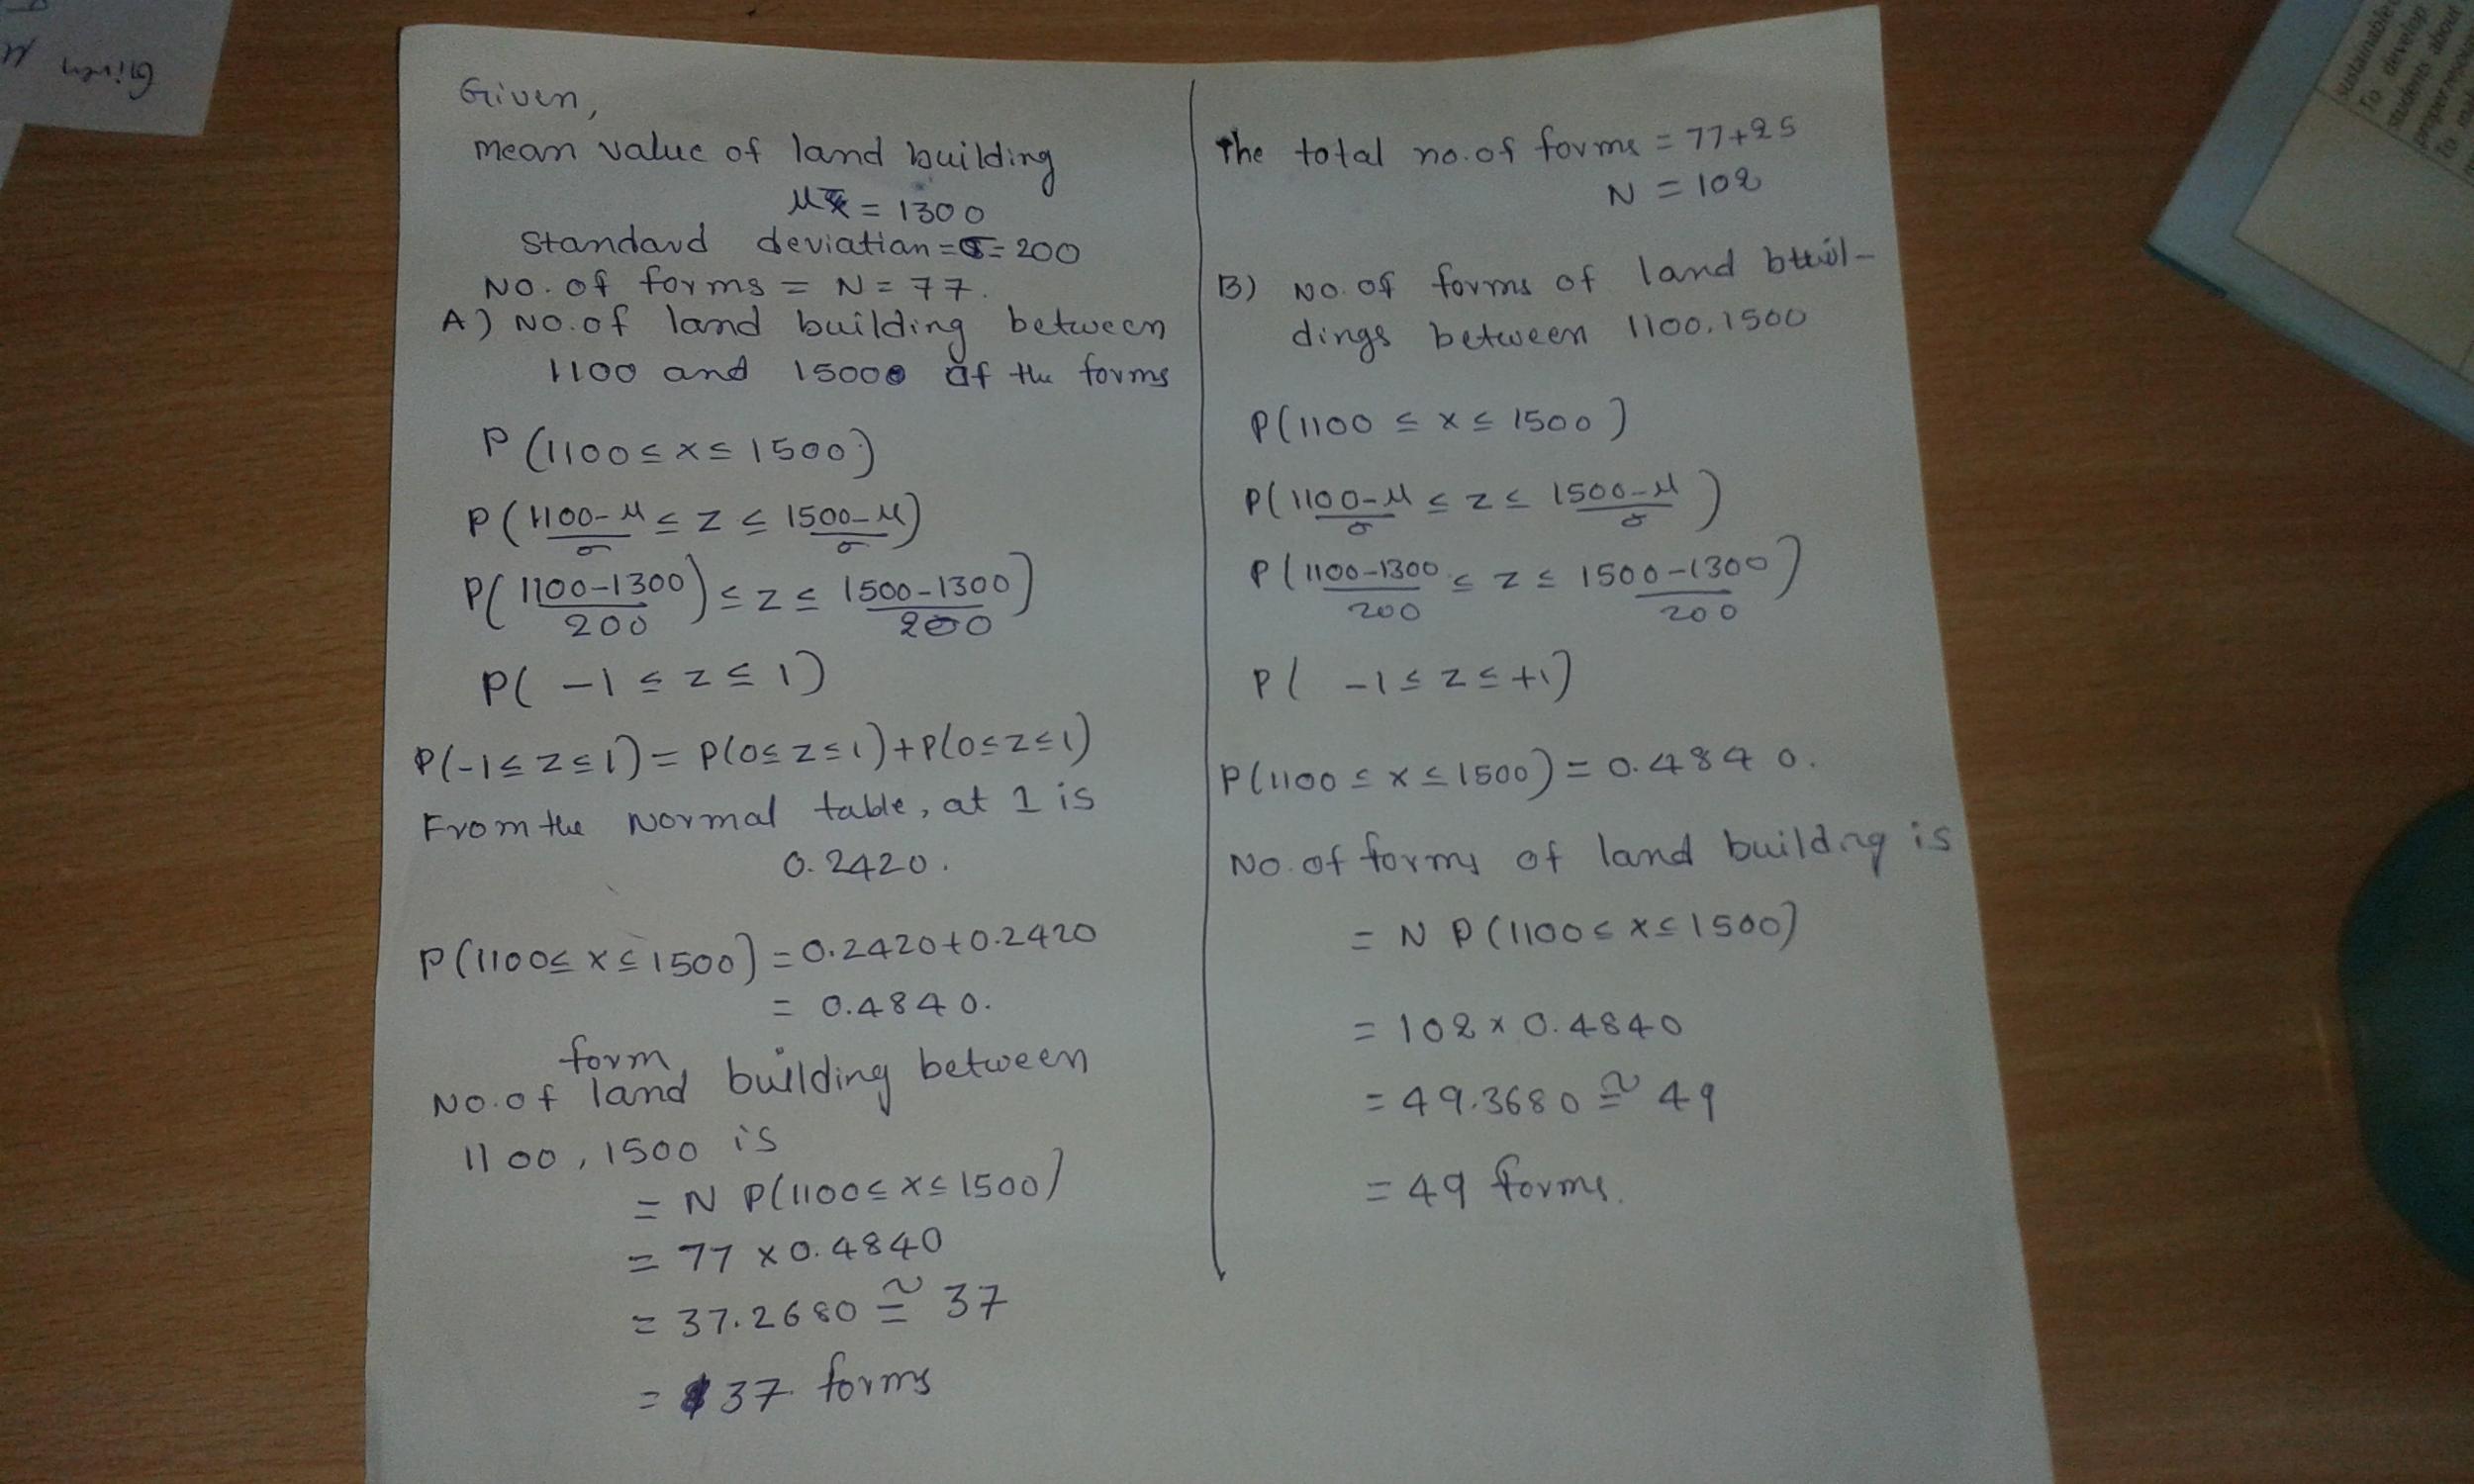 Given μ
Given,
mean value of land building
μ = 1300
Standard deviation = σ = 200
No. of forms = N = 77.
A) No. of land building between
1100 and 1500 of the forms
P(1100 ≤ x ≤ 1500)
P(1100-μ/σ ≤ z ≤ 1500-μ/σ)
P(1100-1300/200) ≤ z ≤ 1500-1300/200)
P( -1 ≤ z ≤ 1)
P(-1 ≤ z ≤ 1) = P(0 ≤ z ≤ 1) + P(0 ≤ z ≤ 1)
From the Normal table, at 1 is
0.2420.
P(1100 ≤ x ≤ 1500) = 0.2420 + 0.2420
= 0.4840.
form
No. of land building between
1100, 1500 is
= N P(1100 ≤ x ≤ 1500)
= 77 x 0.4840
= 37.2680 ≅ 37
= 37 forms
The total no. of forms = 77+25
N = 102
B) No. of forms of land buil-
dings between 1100, 1500
P(1100 ≤ x ≤ 1500)
P(1100-μ/σ ≤ z ≤ 1500-μ/σ)
P(1100-1300/200 ≤ z ≤ 1500-1300/200)
P( -1 ≤ z ≤ +1)
P(1100 ≤ x ≤ 1500) = 0.4840.
No. of forms of land building is
= N P(1100 ≤ x ≤ 1500)
= 102 x 0.4840
= 49.3680 ≅ 49
= 49 forms.
sustainable
To develop
students about
To